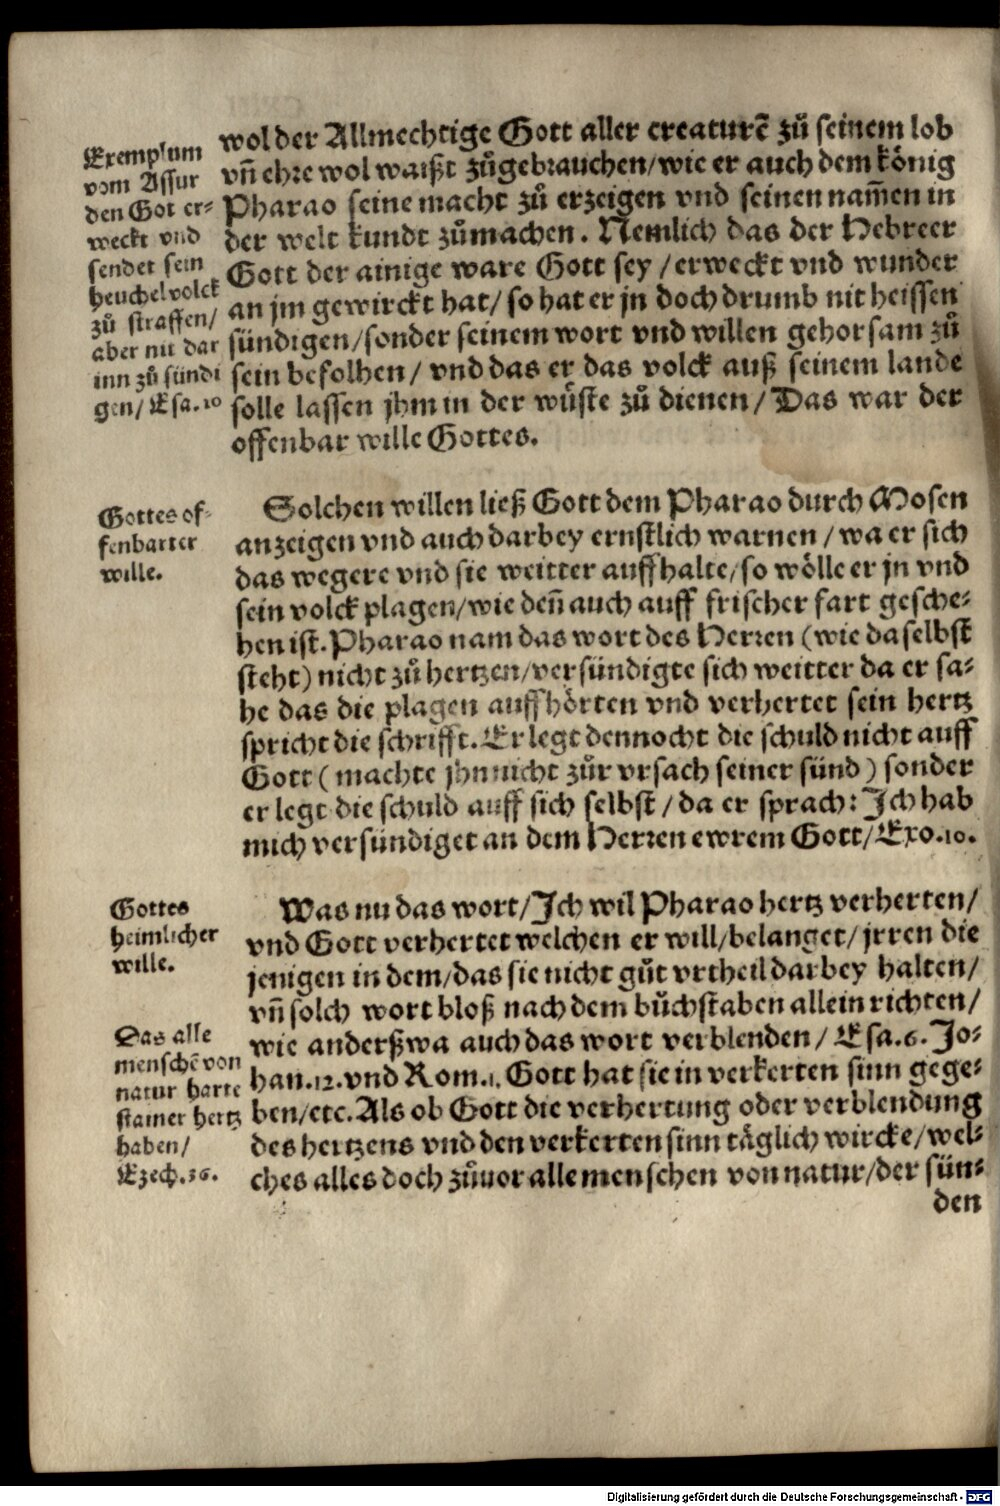 Exemplum
vom Assur
den Got er⸗
weckt vnd
sendet sein
heuchelvolck
zů straffen/
aber nit dar
inn zů sündi
gen/ Esa.10
wol der Allmechtige Gott aller creaturē zů seinem lob
vn̄ ehre wol waißt zůgebrauchen/wie er auch dem könig
Pharao seine macht zů erzeigen vnd seinen nam̄en in
der welt kundt zůmachen. Nemlich das der Hebreer
Gott der ainige ware Gott sey/erweckt vnd wunder
an jm gewirckt hat/ so hat er jn doch drumb nit heissen
sündigen/sonder seinem wort vnd willen gehorsam zů
sein befolhen/ vnd das er das volck auß seinem lande
solle lassen jhm in der wůste zů dienen/ Das war der
offenbar wille Gottes.
Gottes of⸗
fenbarter
wille.
Solchen willen ließ Gott dem Pharao durch Mosen
anzeigen vnd auch darbey ernstlich warnen/ wa er sich
das wegere vnd sie weitter auffhalte/so wölle er jn vnd
sein volck plagen/wie den̄ auch auff frischer fart gesche⸗
hen ist. Pharao nam das wort des Herren (wie daselbst
steht) nicht zů hertzen/versündigte sich weitter da er sa⸗
he das die plagen auffhörten vnd verhertet sein hertz
spricht die schrifft. Er legt dennocht die schuld nicht auff
Gott (machte jhn nicht zůr vrsach seiner sünd) sonder
er legt die schuld auff sich selbst/ da er sprach: Ich hab
mich versündiget an dem Herren ewrem Gott/ Exo.10.
Gottes
heimlicher
wille.
Das alle
menschē von
natur harte
stainer hertz
haben/
Ezech.36.
Was nu das wort/Ich wil Pharao hertz verherten/
vnd Gott verhertet welchen er will/belanget/jrren die
jenigen in dem/das sie nicht gůt vrtheil darbey halten/
vn̄ solch wort bloß nach dem bůchstaben allein richten/
wie anderßwa auch das wort verblenden/ Esa.6. Jo⸗
han.12. vnd Rom.1. Gott hat sie in verkerten sinn gege⸗
ben/etc. Als ob Gott die verhertung oder verblendung
des hertzens vnd den verkerten sinn täglich wircke/wel⸗
ches alles doch zůuor alle menschen von natur/der sün⸗
den
Digitalisierung gefördert durch die Deutsche Forschungsgemeinschaft - DFG